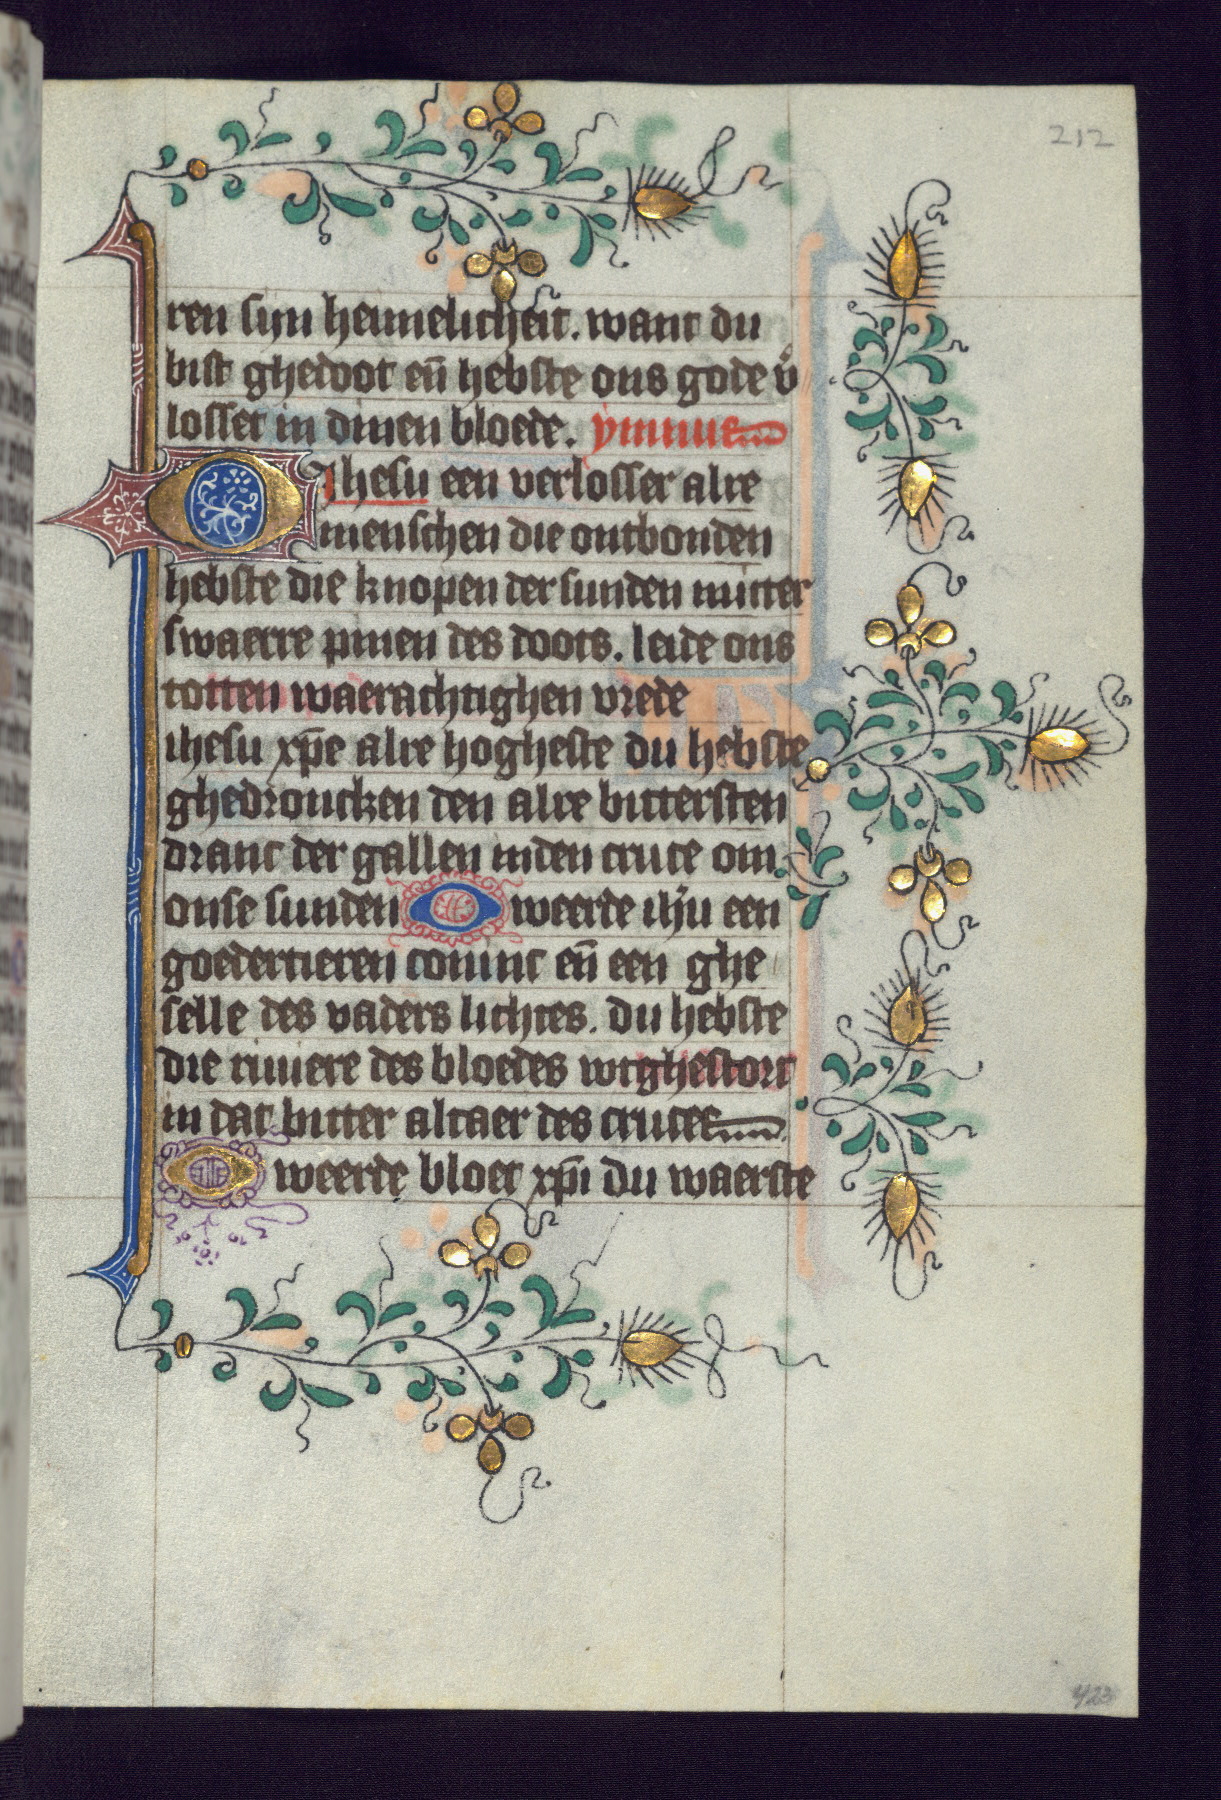 212
ren sijn heimelicheit. want du
bist ghedoot eñ hebste ons gode v̊
losset in dinen bloede. ymnue
O Jhesu een verlosser alre
menschen die ontbonden
hebste die knopen der sunden mitter
swaerre pinen des doots. leide ons
totten waerachtighen vrede
ihesu xp̄e alre hogheste du hebste
ghedroncken den alre bittersten
dranc der gallen inden cruce om
onse sunden O weerde ihū een
goedertieren coninc eñ een ghe
selle des vaders lichtes. du hebste
die riuiere des bloedes wtghestort
in dat bitter altaer des cruces
O weerde bloet xp̄i du waerste
423